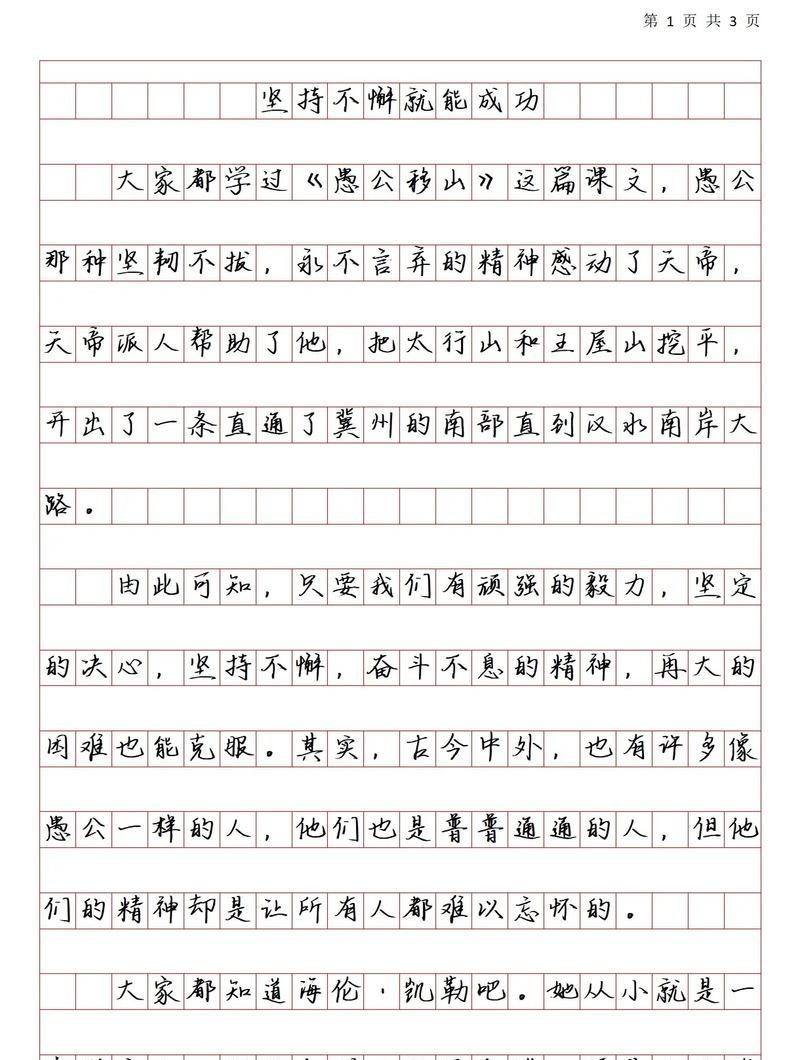 第 1 页 共 3 页
坚持不懈就能成功
大家都学过《愚公移山》这篇课文，愚公
那种坚韧不拔，永不言弃的精神感动了天帝，
天帝派人帮助了他，把太行山和王屋山挖平，
开出了一条直通了冀州的南部直到汉水南岸大
路。
由此可知，只要我们有顽强的毅力，坚定
的决心，坚持不懈，奋斗不息的精神，再大的
困难也能克服。其实，古今中外，也有许多像
愚公一样的人，他们也是普普通通的人，但他
们的精神却是让所有人都难以忘怀的。
大家都知道海伦·凯勒吧。她从小就是一